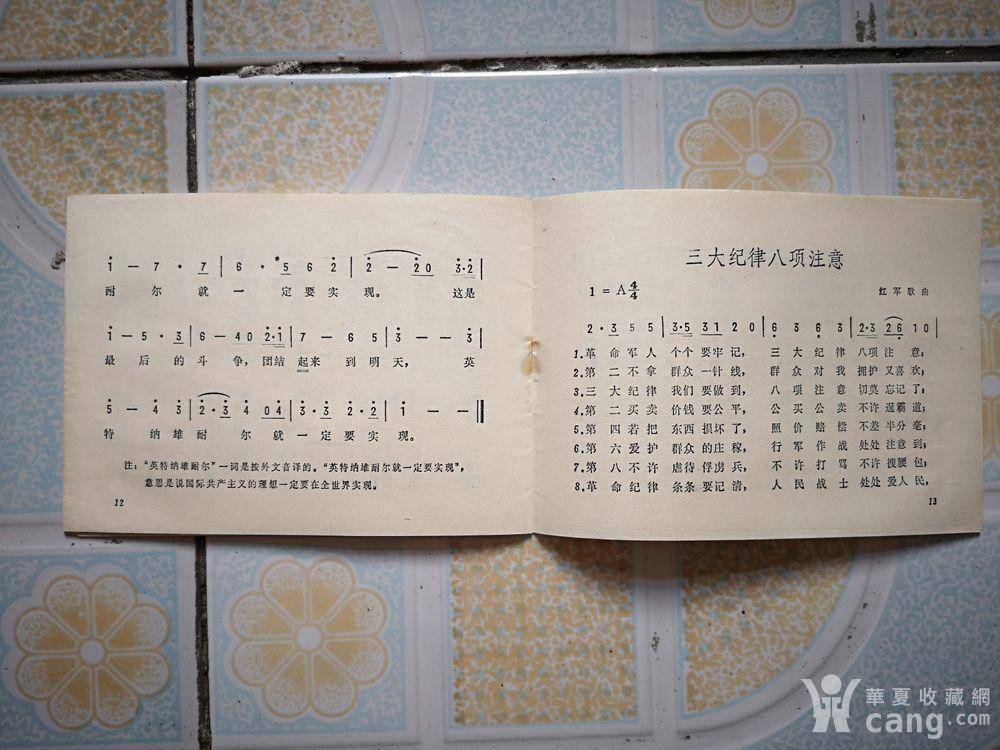 1 — 7 · 7 | 6 · 5 6 2 | 2 — 20 3·2 |
耐 尔 就 一 定要实 现。 这是
1 — 5 · 3 | 6 — 40 2·1 | 7 — 6 5 | 3 — — 3 |
最 后 的 斗 争,团结 起来 到 明 天, 英
5 — 4 3 | 2·3 4 04 | 3·3 2·2 | 1 — — ‖
特 纳 雄 耐 尔 就 一定要 实现。
注:“英特纳雄耐尔”一词是按外文音译的。“英特纳雄耐尔就一定要实现”,
意思是说国际共产主义的理想一定要在全世界实现。
12
三大纪律八项注意
1 = A 4/4
红军歌曲
2·3 5 5 | 3·5 31 2 0 | 6 3 6 3 | 2·3 26 10 |
1.革 命 军 人 个个 要牢 记, 三 大 纪 律 八项 注 意;
2.第 二 不 拿 群众 一针 线, 群 众 对 我 拥护 又喜 欢;
3.三 大 纪 律 我们 要做 到, 八 项 注 意 切莫 忘记 了;
4.第 二 买 卖 价钱 要公 平, 公 买 公 卖 不许 逞霸 道;
5.第 四 若 把 东西 损坏 了, 照 价 赔 偿 不差 半分 毫;
6.第 六 爱 护 群众 的庄 稼, 行 军 作 战 处处 注意 到;
7.第 八 不 许 虐待 俘虏 兵, 不 许 打 骂 不许 搜腰 包;
8.革 命 纪 律 条条 要记 清, 人 民 战 士 处处 爱人 民,
13
華夏收藏網
cang.com